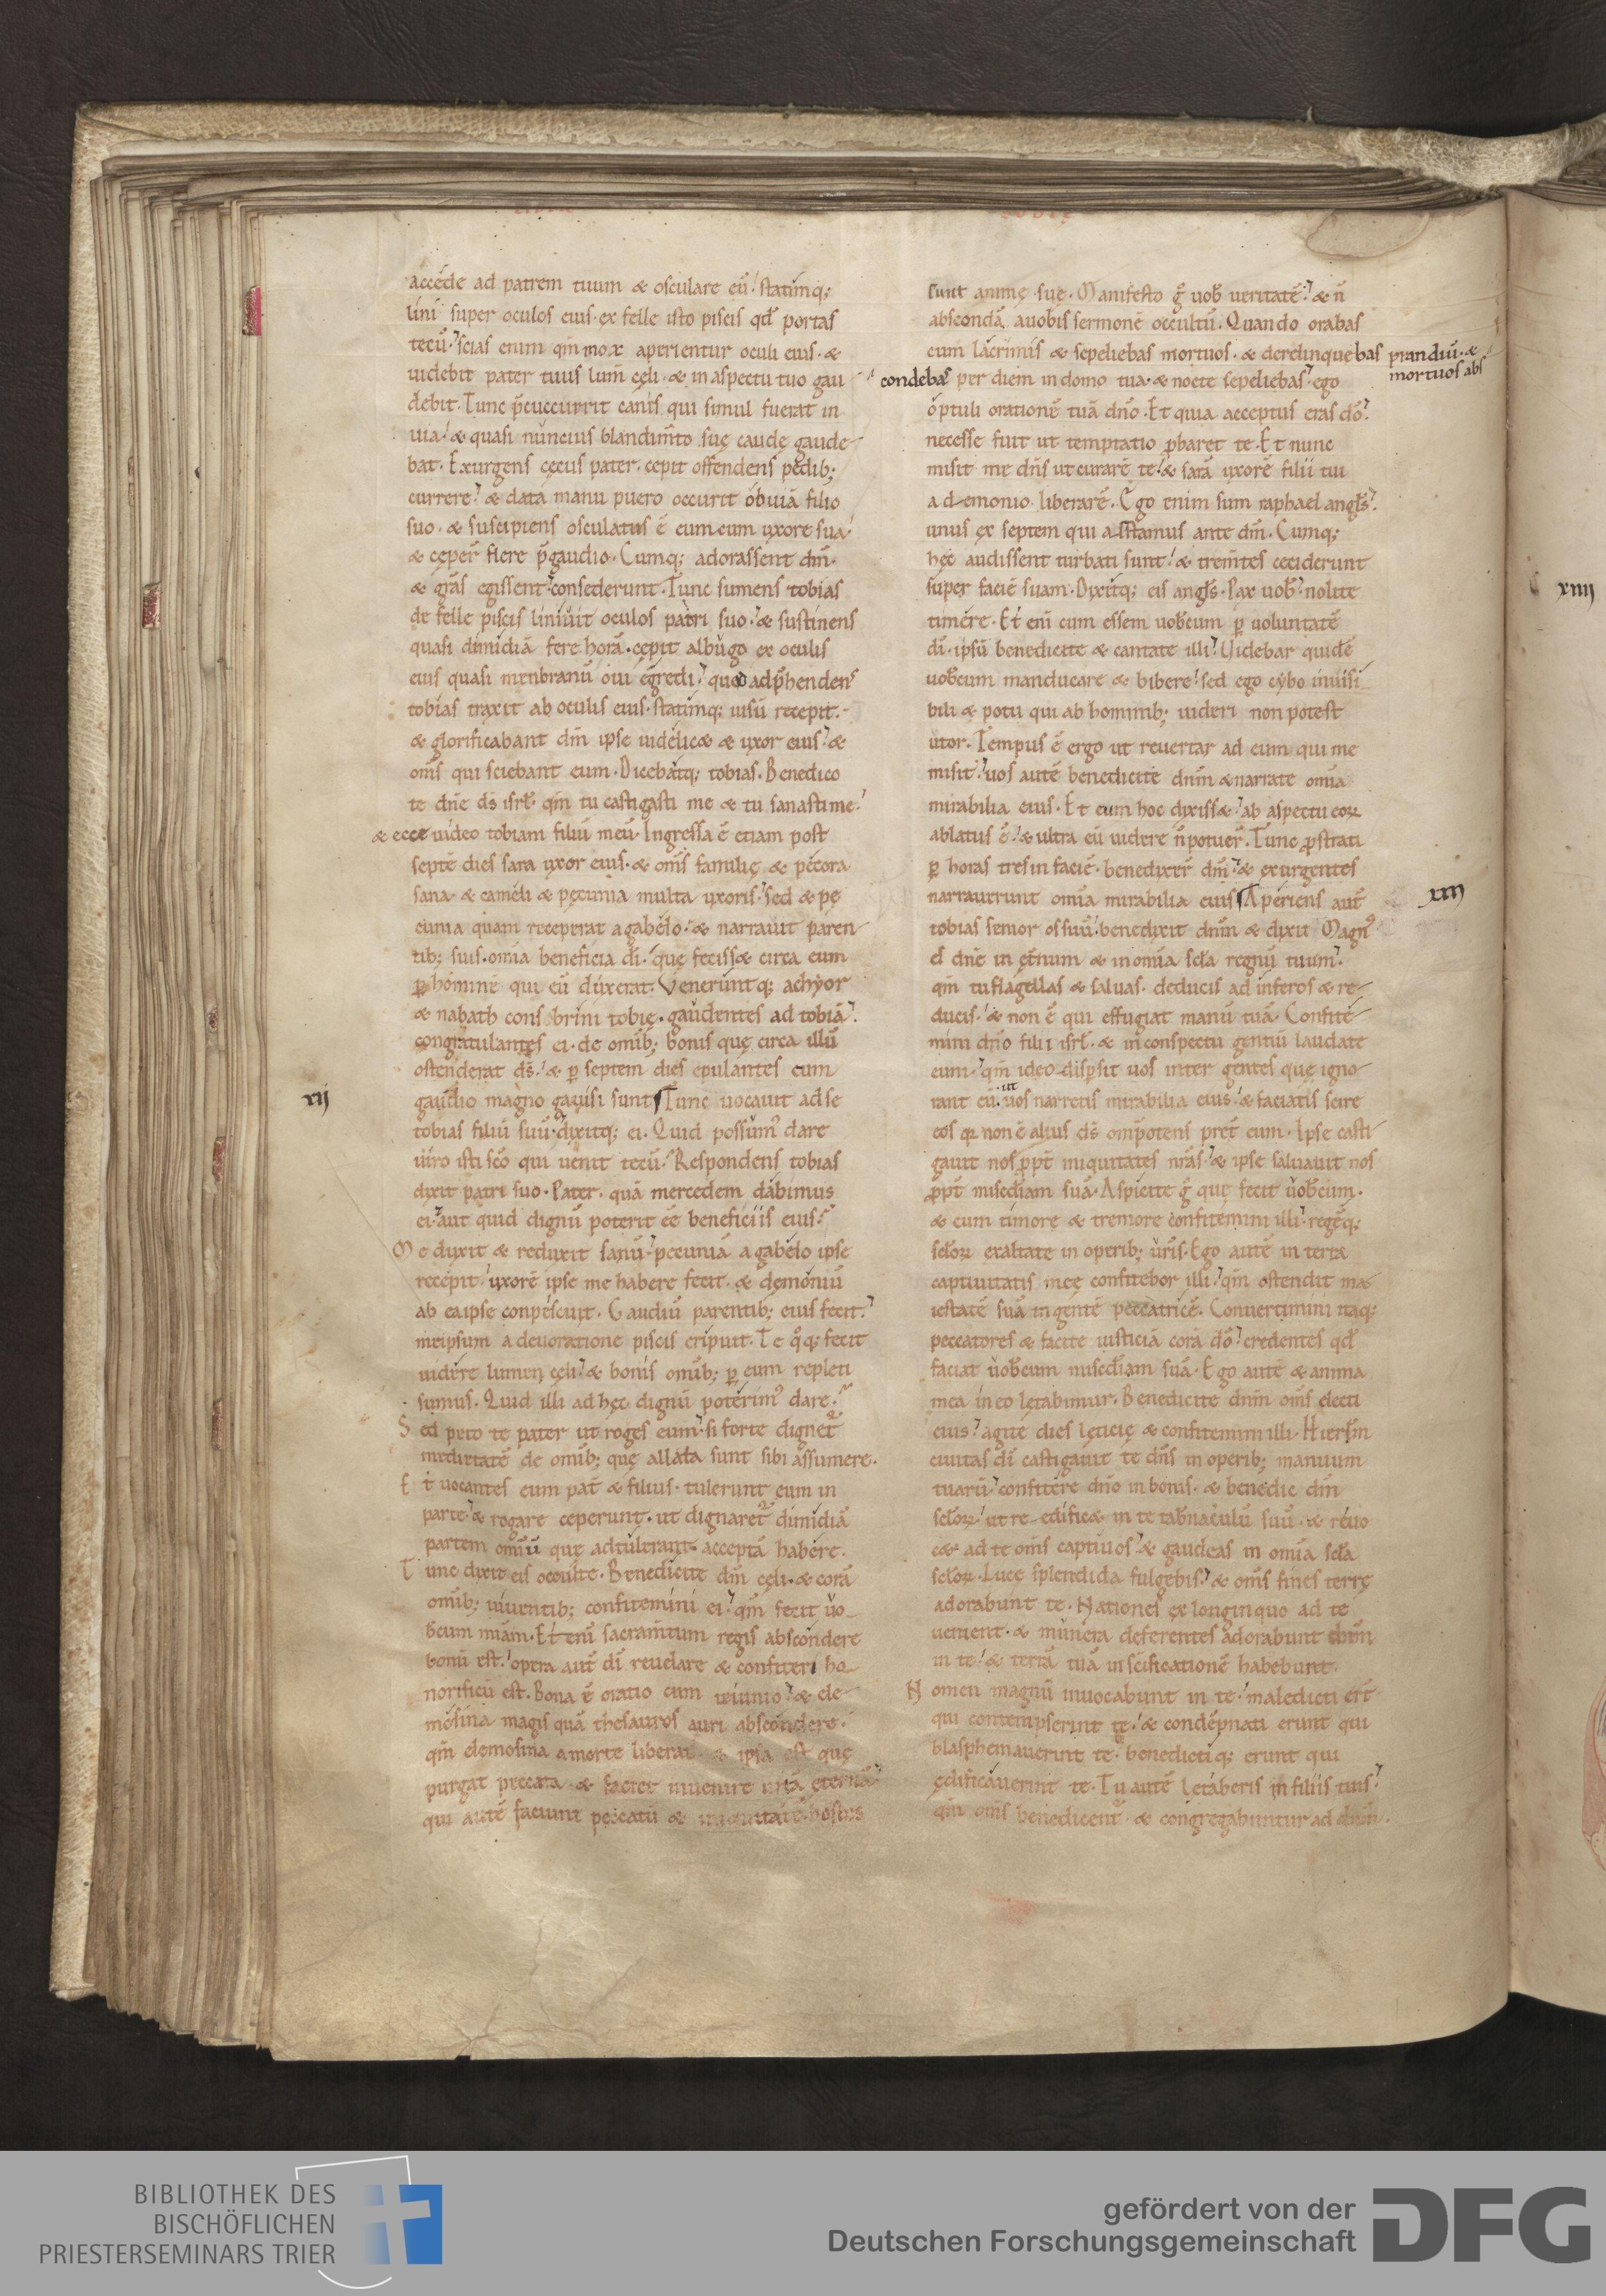 accede ad patrem tuum & osculare eū. statimq;
lini super oculos eius ex felle isto piscis qđ portas
tecū. scias enim qm̄ mox aperientur oculi eius. &
uidebit pater tuus lum̄ cęli. & in aspectu tuo gau
debit. Tunc p̄cucurrit canis qui simul fuerat in
uia. & quasi nuncius blandim̄to suę caudę gaude-
bat. Exurgens cęcus pater. cepit offendens pedib;
currere. & data manu puero occurit obuiā filio
suo. & suscipiens osculatus ē eum cum uxore sua.
& ceper̄ flere p̄gaudio. Cumq; adorassent dm̄.
& gr̄as egissent. consederunt. Tunc sumens tobias
de felle piscis liniuit oculos patri suo. & sustinens
quasi dimidiā fere horā. cepit albugo ex oculis
eius quasi menbranū oui egredi. quod adp̄hendens
tobias traxit ab oculis eius. statimq; uisū recepit.
& glorificabant dm̄ ipse uidelic& & uxor eius. &
om̄s qui sciebant eum. Dicebatq; tobias. Benedico
te dn̄e ds̄ isrl̄. qm̄ tu castigasti me & tu sanasti me.
& ecce uideo tobiam filiū meū. Ingressa ē etiam post
septē dies sara uxor eius. & om̄s familię & pecora
sana & cameli & pecunia multa uxoris. sed & pę
cunia quam receperat a gabelo. & narrauit paren-
tib; suis om̄ia beneficia dī. quę feciss& circa eum
ꝑ hominē qui eū duxerat. Veneruntq; achyor
& nabath consobrini tobię. gaudentes ad tobiā.
congratulantes ei. de om̄ib; bonis quę circa illū
ostenderat ds̄. & ꝑ septem dies epulantes cum
xij
gaudio magno gauisi sunt Tunc uocauit ad se
tobias filiū suū. dixitq; ei. Quid possum' dare
uiro isti sc̄o qui uenit tecū. Respondens tobias
dixit patri suo. Pater. quā mercedem dabimus
ei. aut quid dignū poterit ēē beneficiis eius.
Me duxit & reduxit sanū. pecuniā a gabelo ipse
recepit. uxorē ipse me habere fecit. & demoniū
ab ea ipse conpescuit. Gaudiū parentib; eius fecit.
meipsum a deuoratione piscis eripuit. Te q̊q; fecit
uidere lumen cęli. & bonis om̄ib; ꝑ eum repleti
sumus. Quid illi ad hęc dignū poterim' dare.
Sed peto te pater ut roges eum. si forte dignet̄
medietatē de om̄ib; quę allata sunt sibi assumere.
Et uocantes eum pat̄ & filius. tulerunt eum in
partē. & rogare ceperunt. ut dignaret̄ dimidiā
partem omiū quę adtulerant acceptā habere.
Tunc dixit eis occulte. Benedicite dm̄ cęli. & corā
om̄ib; uiuentib; confitemini ei. qm̄ fecit uo-
bcum miām. Et eni sacram̄tum regis abscondere
bonū est. opera aut̄ dī reuelare & confiteri ho-
norificū est. Bona ē oratio cum ieiunio. & ele-
mosina magis quā thesauros auri abscondere.
qm̄ elemosina a morte liberat & ipsa est quę
purgat peccata. & faciet inuenire uitā ęternā
qui autē faciunt peccatū & iniquitatē. hostes
sunt animę suę. Manifesto ḡ uob̄ ueritatē. & n̄
abscondā auobis sermonē occultū. Quando orabas
cum lacrimis & sepeliebas mortuos. & derelinquebas prandiū. &
mortuos abs
condebas per diem in domo tua. & nocte sepeliebas. ego
optuli orationē tuā dn̄o. Et quia acceptus eras dō.
necesse fuit ut temptatio ꝓbaret te. Et nunc
misit me dn̄s ut curarē te. & sarā uxorē filii tui
a demonio liberarē. Ego enim sum raphael angl̄s.
unus ex septem qui astamus ante dm̄. Cumq;
hęc audissent turbati sunt. & trem̄tes ceciderunt
super faciē suam. Dixitq; eis angl̄s. Pax uob̄. nolite
xiiij
timere. Et eni cum essem uob̄cum ꝑ uoluntatē
dī. ipsū benedicite & cantate illi. Uidebar quidē
uob̄cum manducare & bibere. sed ego cybo inuisi-
bili & potu qui ab hominib; uideri non potest
utor. Tempus ē ergo ut reuertar ad eum qui me
misit. uos autē benedicite dnm̄ & narrate om̄ia
mirabilia eius. Et cum hoc dixiss&. ab aspectu eoꝝ
ablatus ē. & ultra eū uidere n̄ potuer̄. Tunc ꝓstrati
ꝑ horas tres in faciē. benedixer̄ dm̄. & exurgentes
narrauerunt om̄ia mirabilia eius Aperiens aut̄
xiij
tobias senior os suū. benedixit dnm̄ & dixit Magn'
es dn̄e in et̄num & in om̄ia scl̄a regnū tuum.
qm̄ tu flagellas & saluas. deducis ad inferos & re-
ducis. & non ē qui effugiat manū tuā. Confite-
mini dn̄o filii isrl̄. & in conspectu gentiū laudate
eum. qm̄ ideo disp̄sit uos inter gentes quę igno-
rant eū. ut uos narretis mirabilia eius. & faciatis scire
eos qa non ē alius ds̄ omp̄otens pret̄ eum. Ipse casti-
gauit nos ꝓpt̄ iniquitates nr̄as. & ipse saluauit nos
ꝓpt̄ misedīam suā. Aspicite ḡ quę fecit uob̄cum.
& cum timore & tremore confitemini illi. regēq;
scl̄oꝝ exaltate in operib; ur̄is. Ego autē in terra
captiuitatis meę confitebor illi. qm̄ ostendit ma-
iestatē suā in gentē peccatricē. Conuertimini itaq;
peccatores & facite iusticiā corā dō. credentes qđ
faciat uob̄cum misedīam suā. Ego autē & anima
mea in eo lętabimur. Benedicite dnm̄ om̄s electi
eius. agite dies lęticię & confitemini illi. Hierl̄m
ciuitas dī castigauit te dn̄s in operib; manuum
tuarū. confitere dn̄o in bonis. & benedic dm̄
scl̄oꝝ. ut re edific& in te tab̄naculū suū. & reuo
c& ad te om̄s captiuos. & gaudeas in om̄ia scl̄a
scl̄oꝝ. Luce splendida fulgebis. & om̄s fines terrę
adorabunt te. Nationes ex longinquo ad te
uenient. & munera deferentes adorabunt dnm̄
in te. & terrā tuā in sc̄ificationē habebunt.
Nomen magnū inuocabunt in te. maledicti er̄t
qui contempserint te. & condēpnati erunt qui
blasphemauerint te. benedictiq; erunt qui
ędificauerint te. Tu autē lętaberis in filiis tuis.
qm̄ om̄s benedicent̄. & congregabuntur ad dnm̄.
BIBLIOTHEK DES
BISCHÖFLICHEN
PRIESTERSEMINARS TRIER
gefördert von der
Deutschen Forschungsgemeinschaft
DFG